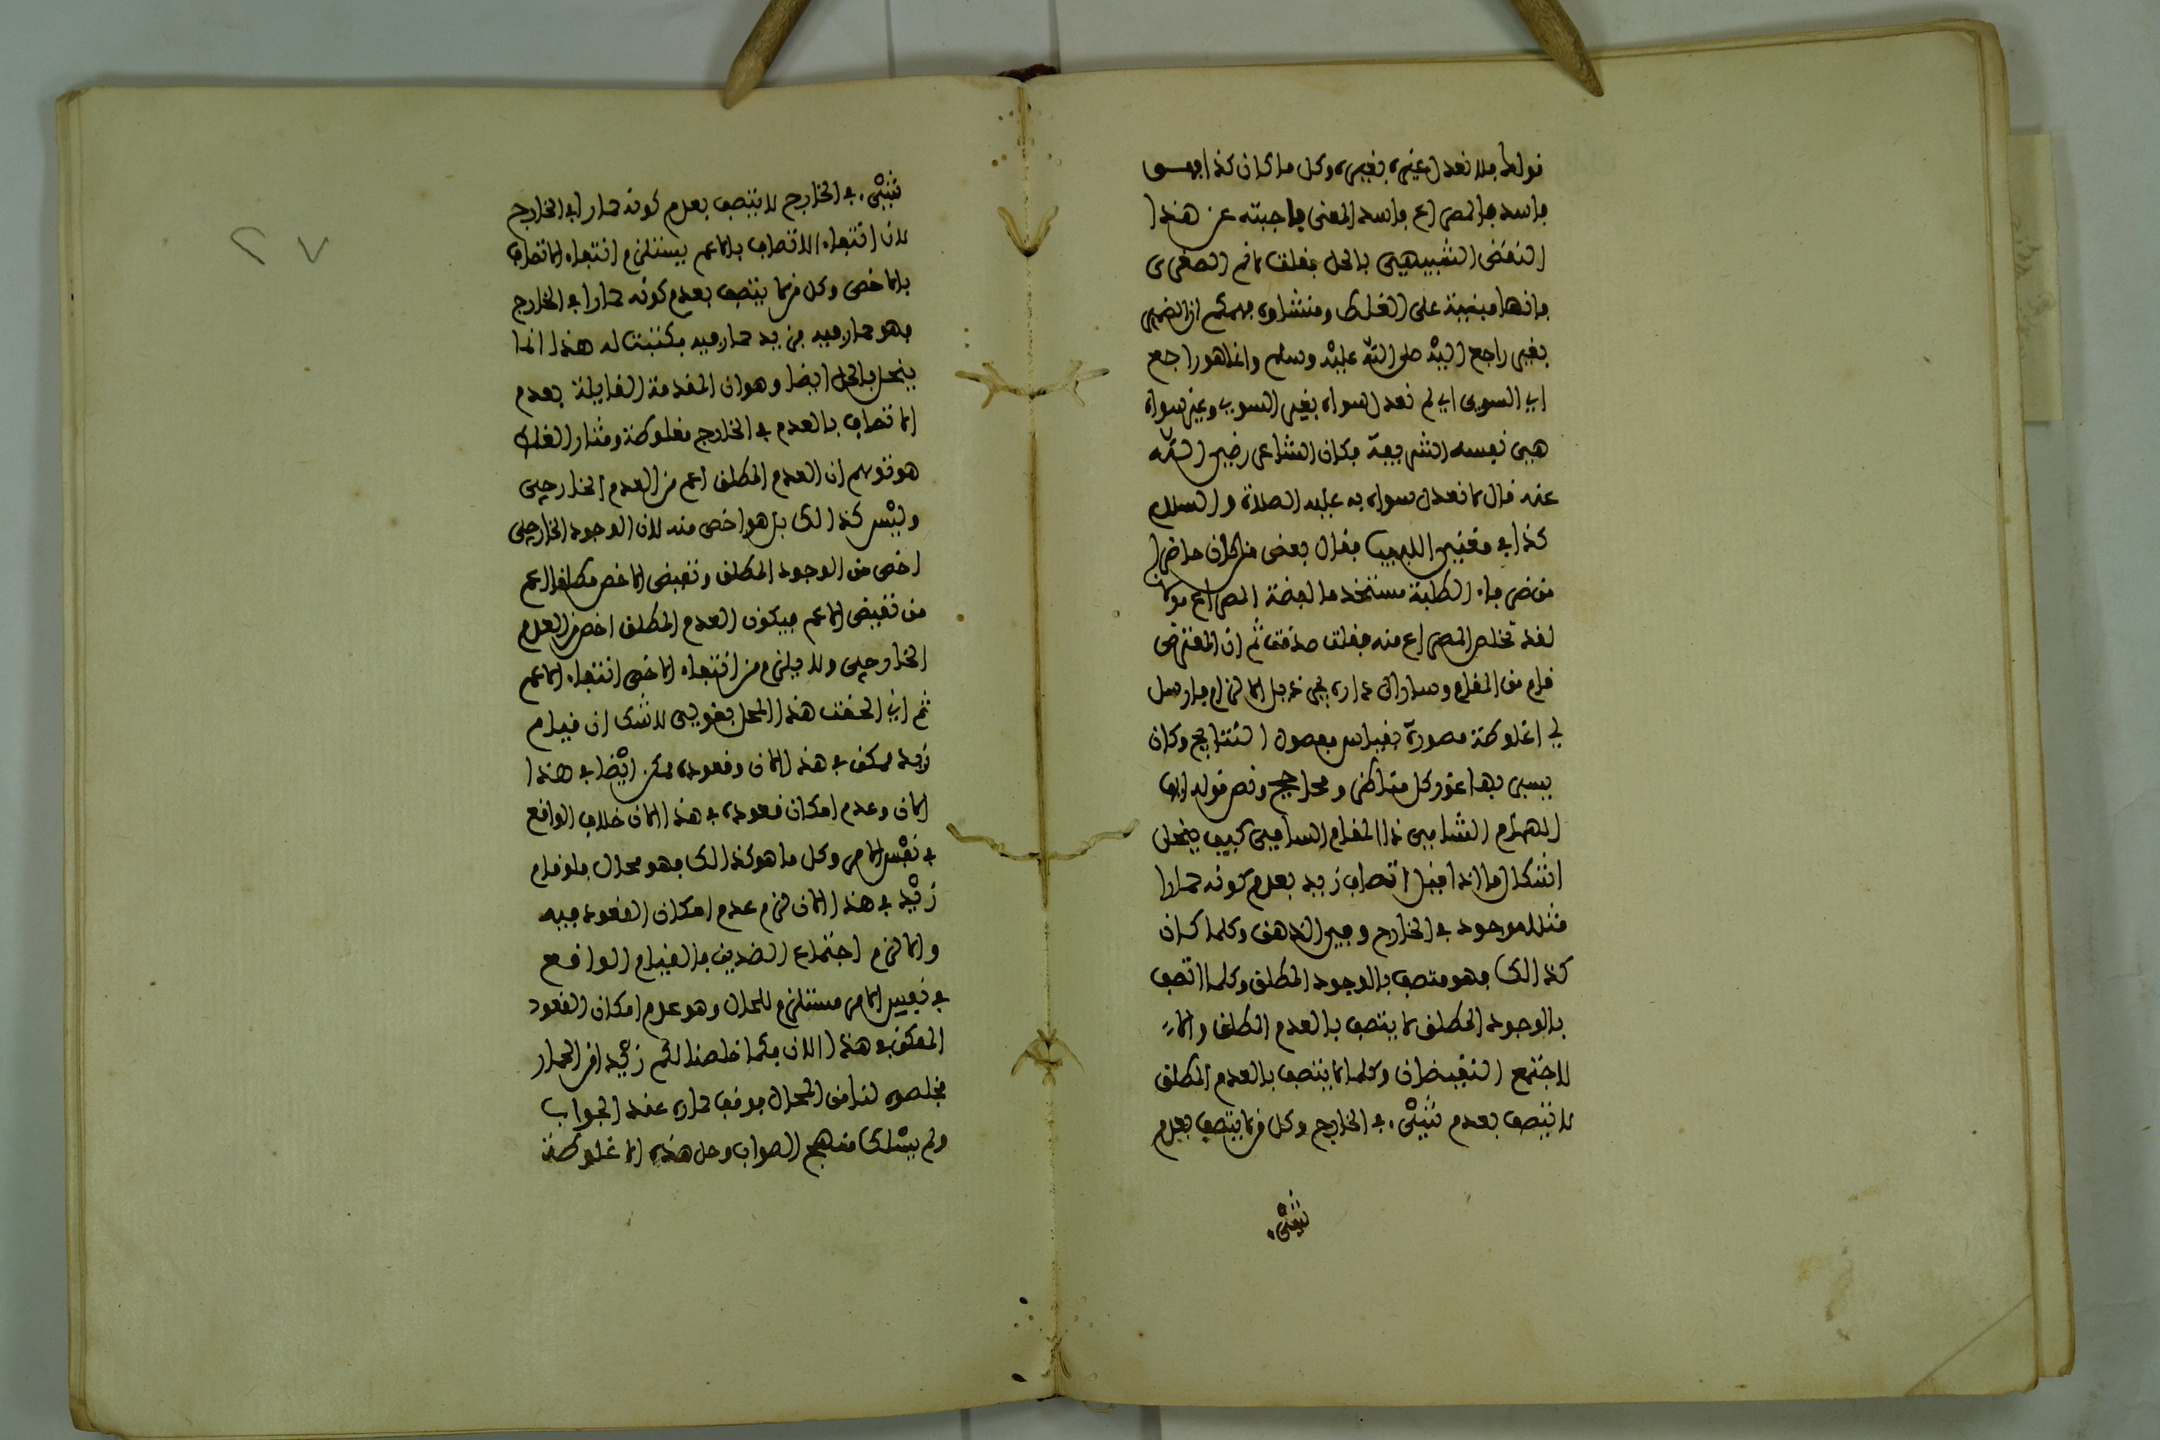 قولك بلا نعدل غيره بغيره وكل ما كان كذا فهو
فاسد فالمصراع فاسد المعنى فاجبته عن هذا
النقض الشبيهي بالحل فقلت نمنع الصغرى
فانها مبنية على الغلط ومنشاوه فهمكم ان الضمير
بغير راجع اليه صلى الله عليه وسلم وانما هو راجع
الى السوى اي لم نعدل سواه بغير السوى وغير سواه
هي نفسه الشريفة فكان الشاعر رضي الله
عنه قال ما نعدل سواه به عليه الصلاة والسلام
كذا في مغني اللبيب فقال بعض من كان حاضرا
من ضرفاء الطلبة مستخدما لفضة المصراع مولانا
لقد تخلص المصراع منه فقلت صدقت ثم ان المعترض
قام من المقام وسار الى داره يجر ذيل الالزام فارسل
لي اغلوطة مصورة بقياس مفصول النتايج وكان
يسبي بها عقول كل مناظر ومحاجج ونص قوله ايها
الهمام السامي ذا المقام السامي كيف ينحل
اشكال ما اذا قيل اتصاف زيد بعدم كونه حمارا
مثلا موجود في الخارج وفي الذهن وكلما كان
كذالك فهو متصف بالوجود المطلق وكلما اتصف
بالوجود المطلق لا يتصف بالعدم المطلق والا
لاجتمع النقيضان وكلما لا يتصف بالعدم المطلق
لا يتصف بعدم شيء في الخارج وكل من لا يتصف بعدم
شيء
شيء في الخارج لا يتصف بعدم كونه حمارا في الخارج
لان انتفاء الاتصاف بالاعم يستلزم انتفاء الاتصاف
بالاخص وكل من لا يتصف بعدم كونه حمارا في الخارج
فهو حمار فيه فزيد حمار فيه فكتبت له هذا انما
ينحل بالحل ايضا وهو ان المقدمة القايلة بعدم
الاتصاف بالعدم في الخارج مغلوطة ومثار الغلط
هو توهم ان العدم المطلق اعم من العدم الخارجي
وليس كذالك بل هو اخص منه لان الوجود الخارجي
اخص من الوجود المطلق ونقيض الاخص مطلقا اعم
من نقيض الاعم فيكون العدم المطلق اخص من العدم
الخارجي ولا يلزم من انتفاء الاخص انتفاء الاعم
ثم اني الحقت هذا المحل بقولي لا شك ان قيام
زيد ممكن في هذا الان وقعوده ممكن ايضا في هذا
الان وعدم امكان قعوده في هذا الان خلاف الواقع
في نفس الامر وكل ما هو كذالك فهو محال فلو قام
زيد في هذا الان لزم عدم امكان القعود فيه
والا لزم اجتماع الضدين فالقيام الواقع
في نفس الامر مستلزم للمحال وهو عدم امكان القعود
الممكن في هذا الان فكما خلصنا لكم زيدا من الحمار
فخلصوه لنا من المحال فوقف حماره عند الجواب
ولم يسلك منهج الصواب وحل هذه الاغلوطة
٢٧